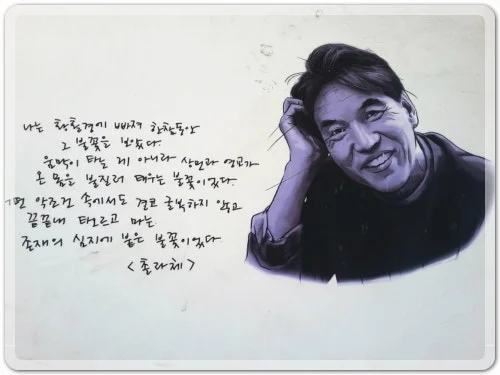 나는 황홀경에 빠져 한참동안
그 불꽃을 보았다.
움막이 타는 게 아니라 상민과 영교가
온 몸을 불질러 태우는 불꽃이었다.
어떤 악조건 속에서도 결코 굴복하지 않고
끝끝내 타오르고 마는.
존재의 심지에 붙은 불꽃이었다
<촐라체>